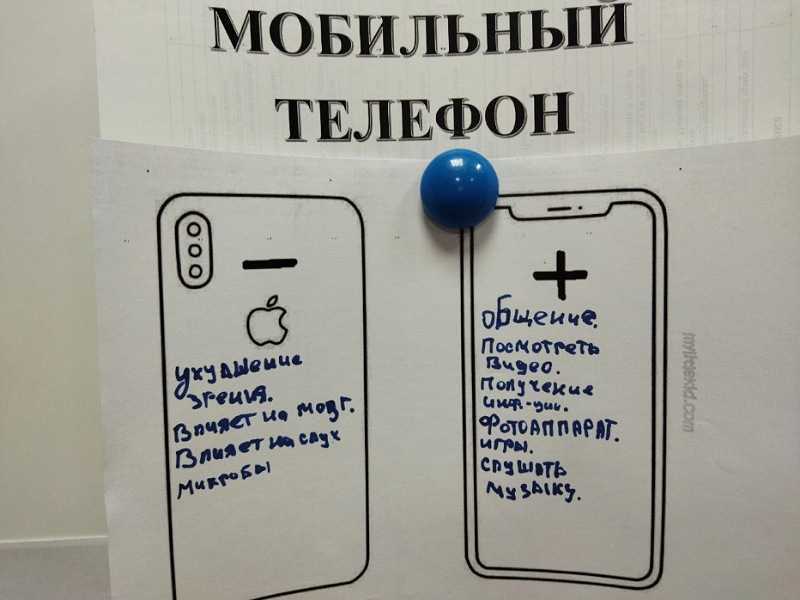 МОБИЛЬНЫЙ
ТЕЛЕФОН
−
ухудшение
зрения.
Влияет на мозг.
Влияет на слух
микробы
+
общение.
Посмотреть
видео.
Получение
инф-ции.
ФОТОАППАРАТ.
игры.
слушать
музыку.